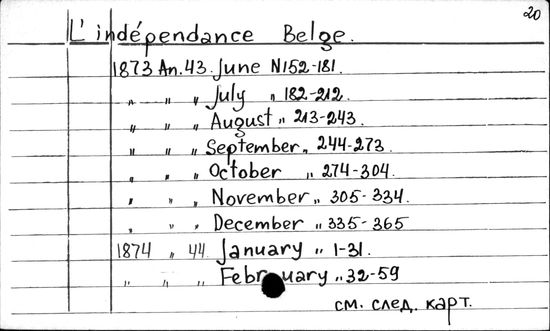 20
L'indépendance Belge.
1873 An. 43. June N152-181.
" " " July " 182-212.
" " " August " 213-243.
" " " September " 244-273.
" " " October " 274-304.
" " " November " 305-334.
" " " December " 335-365
1874 " 44. January " 1-31.
" " " February " 32-59
см. след. карт.